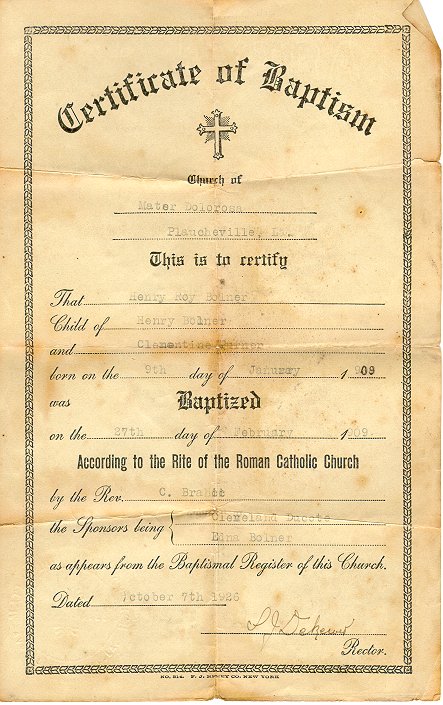 Certificate of Baptism
Church of
Mater Dolorosa
Plaucheville, La.
This is to certify
That Henry Roy Bolner
Child of Henry Bolner
and Clementine
born on the 9th day of January 1909
was Baptized
on the 27th day of February 1909
According to the Rite of the Roman Catholic Church
by the Rev. C.
the Sponsors being { Cleveland Ducote
Edna Bolner
as appears from the Baptismal Register of this Church.
Dated October 7th 1926
Rector.
NO. 814. F. J. CO. NEW YORK